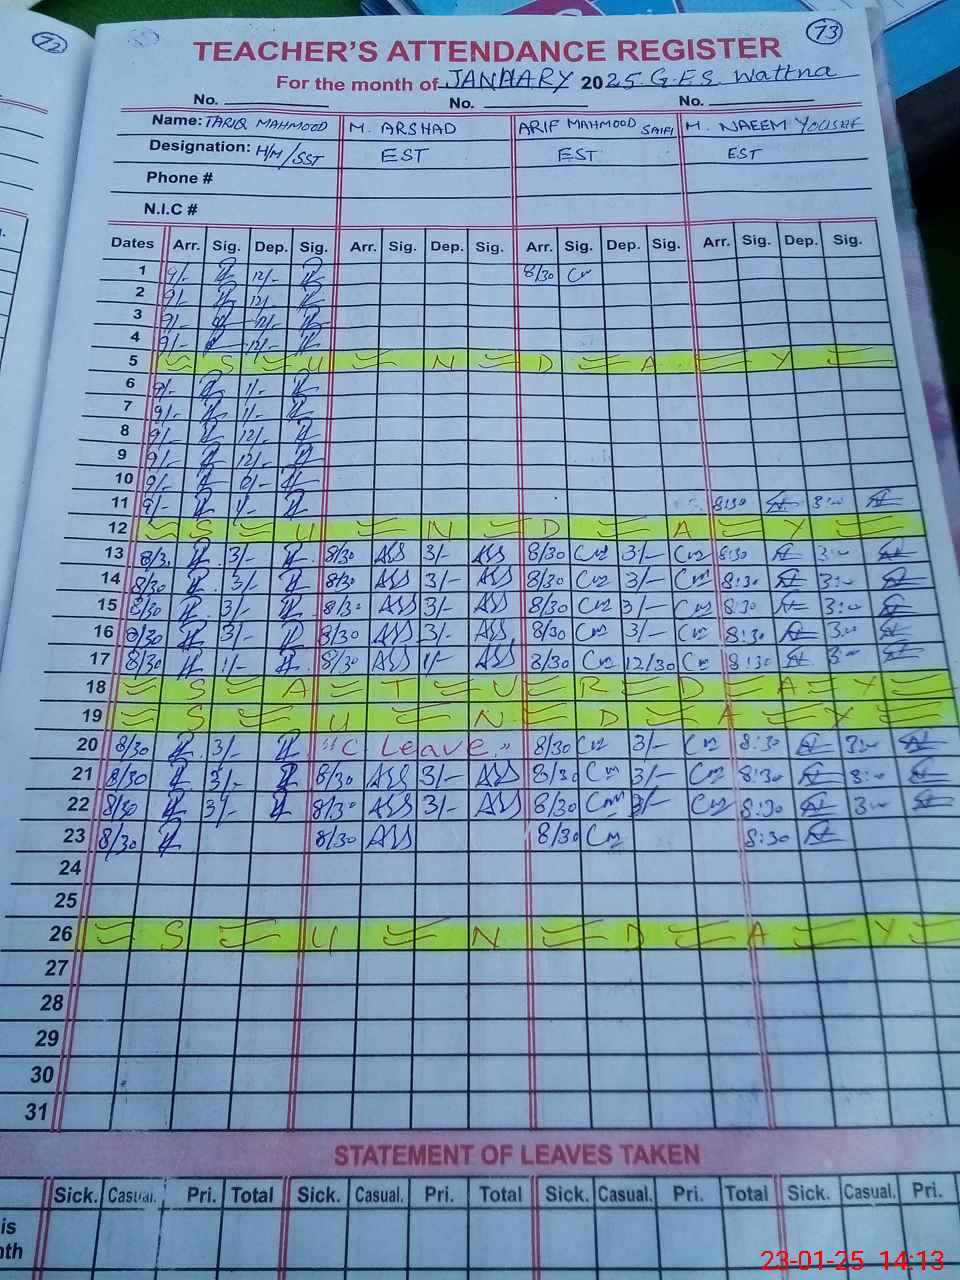 72
73
TEACHER'S ATTENDANCE REGISTER
For the month of JANUARY 2025 G.E.S. Wattna
No. No. No.
Name: TARIQ MAHMOOD M. ARSHAD ARIF MAHMOOD SAIFI M. NAEEM YOUSAF
Designation: H/M/SST EST EST EST
Phone #
N.I.C #
Dates Arr. Sig. Dep. Sig. Arr. Sig. Dep. Sig. Arr. Sig. Dep. Sig. Arr. Sig. Dep. Sig.
1 9/- 12/- 8/30
2 9/- 12/-
3 9/- 12/-
4 9/- 12/-
5 S U N D A Y
6 9/- 1/-
7 9/- 1/-
8 9/- 12/-
9 9/- 12/-
10 9/- 12/-
11 9/- 1/- 8:30 3:00
12 S U N D A Y
13 8/30 3/- 8/30 3/- 8/30 3/- 8:30 3:00
14 8/30 3/- 8/30 3/- 8/30 3/- 8:30 3:00
15 8/30 3/- 8/30 3/- 8/30 3/- 8:30 3:00
16 8/30 3/- 8/30 3/- 8/30 3/- 8:30 3:00
17 8/30 1/- 8/30 1/- 8/30 12/30 8:30 3:00
18 S A T U R D A Y
19 S U N D A Y
20 8/30 3/- "C Leave." 8/30 3/- 8:30 3:00
21 8/30 3/- 8/30 3/- 8/30 3/- 8:30 3:00
22 8/30 3/- 8/30 3/- 8/30 3/- 8:30 3:00
23 8/30 8/30 8/30 8:30
24
25
26 S U N D A Y
27
28
29
30
31
STATEMENT OF LEAVES TAKEN
Sick. Casual. Pri. Total Sick. Casual. Pri. Total Sick. Casual. Pri. Total Sick. Casual. Pri.
is
nth
23-01-25 14:13